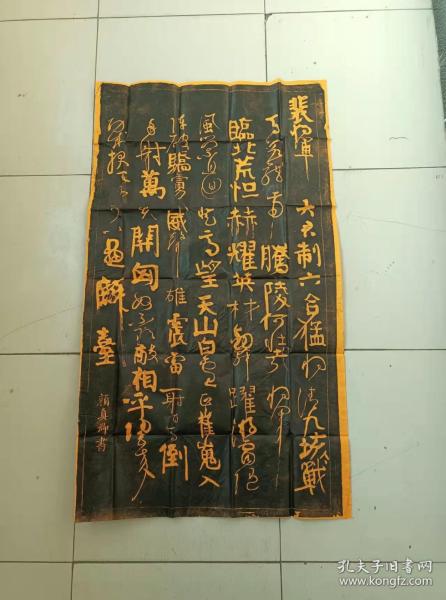 裴將軍 大君制六合猛將清九垓戰
馬若龍虎騰陵何壯哉將軍
臨北荒恒赫耀英材劍舞躍游電隨
風縈且迴登高望天山白雲正崔嵬入
陣破驕虜威聲雄震雷一射百馬倒
再射萬夫開匈奴不敢敵相呼歸去來
功成報天子可以畫麟臺
顏真卿書
孔夫子旧书网
www.kongfz.com